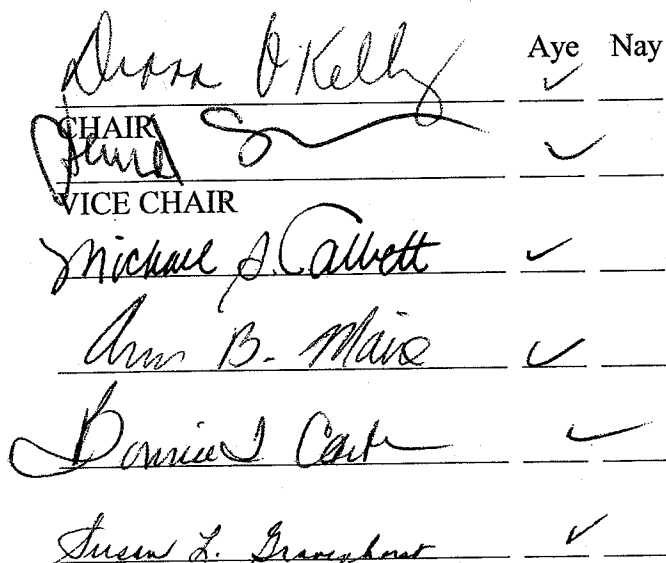 Aye Nay
Diana O'Kelly ✓
CHAIR
✓
VICE CHAIR
Michael S. Talbett ✓
Ann B. Maine ✓
Bonnie T Carter ✓
Susan L. Gravenhorst ✓